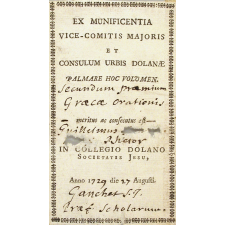 EX MUNIFICENTIA
VICE-COMITIS MAJORIS
ET
CONSULUM URBIS DOLANÆ
PALMARE HOC VOLUMEN.
Secundum præmium
Græcæ orationis
meritus ac consecutus est
Guillelmus
Rhetor
IN COLLEGIO DOLANO
SOCIETATIS JESU,
Anno 1729 die 27 Augusti.
Ganchet S.J.
Præf Scholarum.